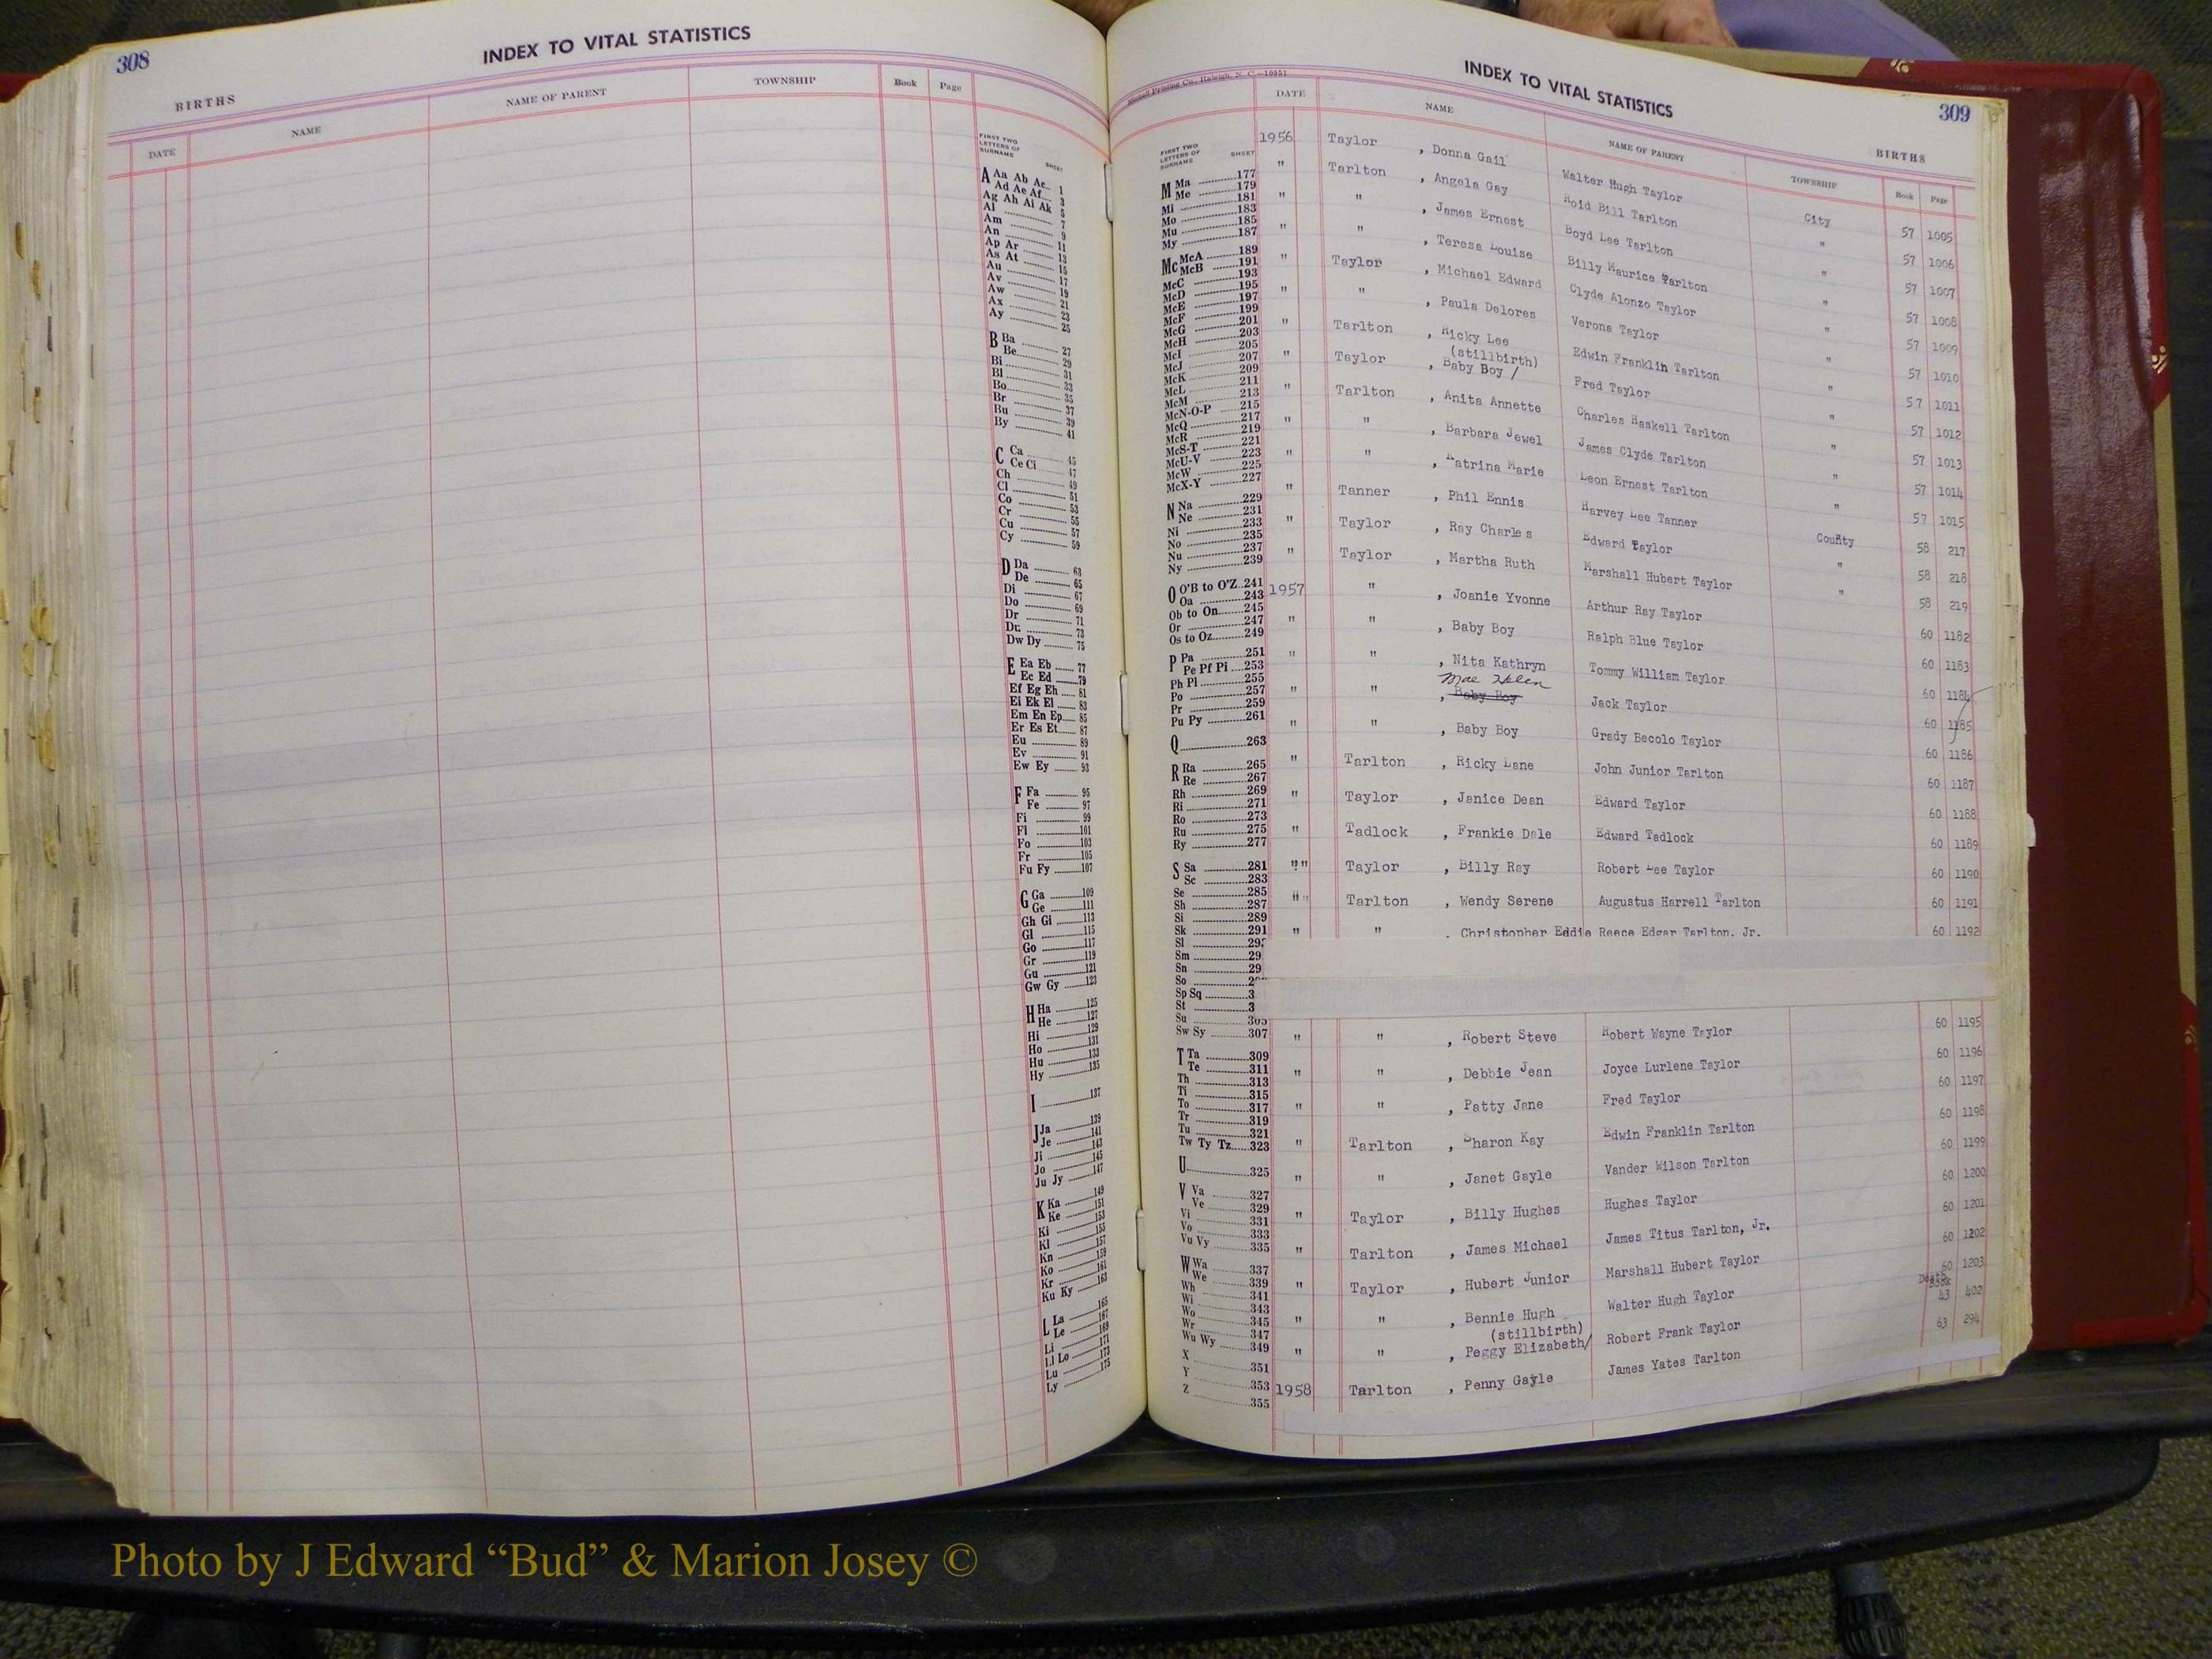 308
INDEX TO VITAL STATISTICS
BIRTHS
DATE NAME NAME OF PARENT TOWNSHIP Book Page
FIRST TWO
LETTERS OF
SURNAME SHEET
A Aa Ab Ac 1
Ad Ae Af 3
Ag Ah Ai Ak 5
Al 7
Am 9
An 11
Ap Ar 13
As At 15
Au 17
Av 19
Aw 21
Ax 23
Ay 25
B Ba 27
Be 29
Bi 31
Bl 33
Bo 35
Br 37
Bu 39
By 41
C Ca 45
Ce Ci 47
Ch 49
Cl 51
Co 53
Cr 55
Cu 57
Cy 59
D Da 63
De 65
Di 67
Do 69
Dr 71
Du 73
Dw Dy 75
E Ea Eb 77
Ec Ed 79
Ef Eg Eh 81
Ei Ek El 83
Em En Ep 85
Er Es Et 87
Eu 89
Ev 91
Ew Ey 93
F Fa 95
Fe 97
Fi 99
Fl 101
Fo 103
Fr 105
Fu Fy 107
G Ga 109
Ge 111
Gh Gi 113
Gl 115
Go 117
Gr 119
Gu 121
Gw Gy 123
H Ha 125
He 127
Hi 129
Ho 131
Hu 133
Hy 135
I 137
J Ja 139
Je 141
Ji 143
Jo 145
Ju Jy 147
K Ka 149
Ke 151
Ki 153
Kl 155
Kn 157
Ko 159
Kr 161
Ku Ky 163
L La 165
Le 167
Li 169
Ll Lo 171
Lu 173
Ly 175
Printing Co., Raleigh, N. C.—10951
INDEX TO VITAL STATISTICS
309
BIRTHS
DATE NAME NAME OF PARENT TOWNSHIP Book Page
FIRST TWO
LETTERS OF
SURNAME SHEET
M Ma 177
Me 179
Mi 181
Mo 183
Mu 185
My 187
Mc McA 189
McB 191
McC 193
McD 195
McE 197
McF 199
McG 201
McH 203
McI 205
McJ 207
McK 209
McL 211
McM 213
McN-O-P 215
McQ 217
McR 219
McS-T 221
McU-V 223
McW 225
McX-Y 227
N Na 229
Ne 231
Ni 233
No 235
Nu 237
Ny 239
O O'B to O'Z 241
Oa 243
Ob to On 245
Or 247
Os to Oz 249
P Pa 251
Pe Pf Pi 253
Ph Pl 255
Po 257
Pr 259
Pu Py 261
Q 263
R Ra 265
Re 267
Rh 269
Ri 271
Ro 273
Ru 275
Ry 277
S Sa 281
Sc 283
Se 285
Sh 287
Si 289
Sk 291
Sl 29
Sm 29
Sn 29
So 2
Sp Sq 3
St 3
Su 305
Sw Sy 307
T Ta 309
Te 311
Th 313
Ti 315
To 317
Tr 319
Tu 321
Tw Ty Tz 323
U 325
V Va 327
Ve 329
Vi 331
Vo 333
Vu Vy 335
W Wa 337
We 339
Wh 341
Wi 343
Wo 345
Wr 347
Wu Wy 349
X 351
Y 353
Z 355
1956 Taylor , Donna Gail Walter Hugh Taylor City 57 1005
" Tarlton , Angela Gay Hoid Bill Tarlton " 57 1006
" " , James Ernest Boyd Lee Tarlton " 57 1007
" " , Teresa Louise Billy Maurice Tarlton " 57 1008
" Taylor , Michael Edward Clyde Alonzo Taylor " 57 1009
" " , Paula Delores Verona Taylor " 57 1010
" Tarlton , Ricky Lee Edwin Franklin Tarlton " 57 1011
(stillbirth)
" Taylor , Baby Boy / Fred Taylor " 57 1012
" Tarlton , Anita Annette Charles Haskell Tarlton " 57 1013
" " , Barbara Jewel James Clyde Tarlton " 57 1014
" " , Katrina Marie Leon Ernest Tarlton " 57 1015
" Tanner , Phil Ennis Harvey Lee Tanner County 58 217
" Taylor , Ray Charles Edward Taylor " 58 218
" Taylor , Martha Ruth Marshall Hubert Taylor " 58 219
1957 " , Joanie Yvonne Arthur Ray Taylor 60 1182
" " , Baby Boy Ralph Blue Taylor 60 1183
" " , Nita Kathryn Tommy William Taylor 60 1184
Mae Helen
" " , Baby Boy Jack Taylor 60 1185
" " , Baby Boy Grady Becolo Taylor 60 1186
" Tarlton , Ricky Lane John Junior Tarlton 60 1187
" Taylor , Janice Dean Edward Taylor 60 1188
" Tadlock , Frankie Dale Edward Tadlock 60 1189
" " Taylor , Billy Ray Robert Lee Taylor 60 1190
" " Tarlton , Wendy Serene Augustus Harrell Tarlton 60 1191
" " , Christopher Eddie Reece Edgar Tarlton, Jr. 60 1192
" " , Robert Steve Robert Wayne Taylor 60 1195
" " , Debbie Jean Joyce Lurlene Taylor 60 1196
" " , Patty Jane Fred Taylor 60 1197
" Tarlton , Sharon Kay Edwin Franklin Tarlton 60 1198
" " , Janet Gayle Vander Wilson Tarlton 60 1199
" Taylor , Billy Hughes Hughes Taylor 60 1200
" Tarlton , James Michael James Titus Tarlton, Jr. 60 1201
" Taylor , Hubert Junior Marshall Hubert Taylor 60 1202
" " , Bennie Hugh Walter Hugh Taylor 60 1203
(stillbirth) Death Book
" " , Peggy Elizabeth/ Robert Frank Taylor 43 402
1958 Tarlton , Penny Gayle James Yates Tarlton 63 294
Photo by J Edward “Bud” & Marion Josey ©